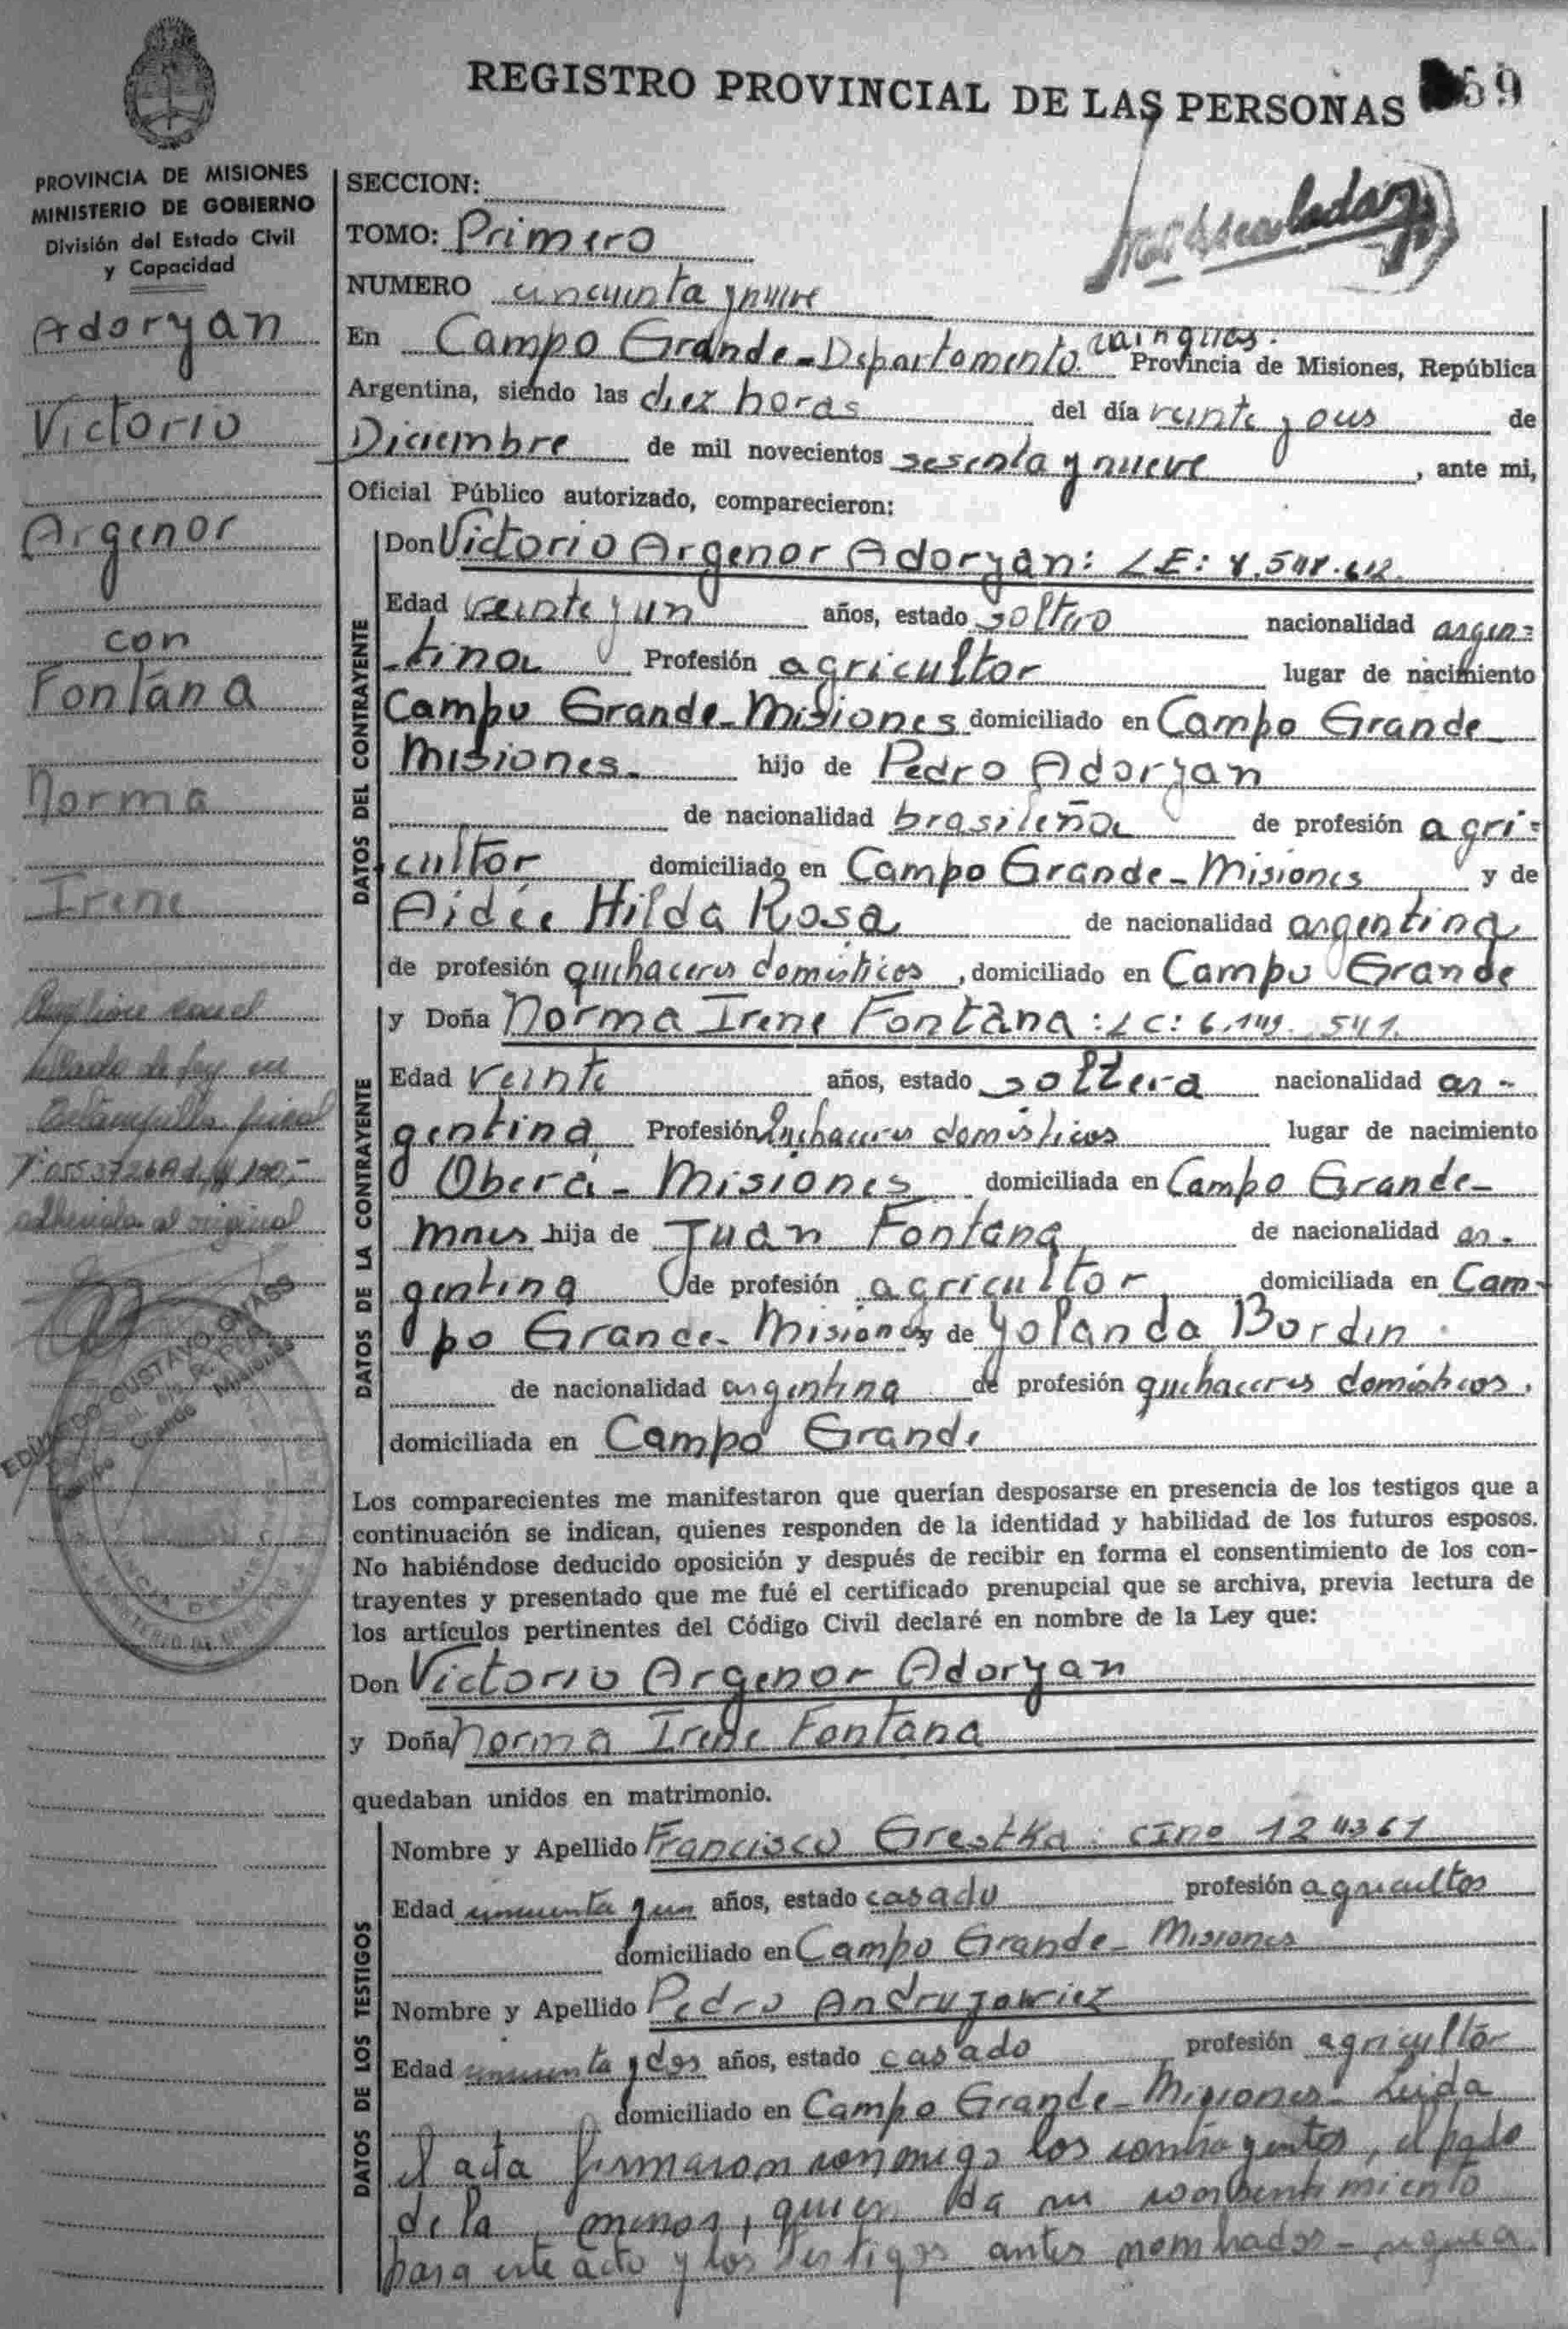 REGISTRO PROVINCIAL DE LAS PERSONAS 59
PROVINCIA DE MISIONES
MINISTERIO DE GOBIERNO
División del Estado Civil
y Capacidad
Adoryan
Victorio
Argenor
con
Fontana
Norma
Irene
adherida al original
EDUARDO GUSTAVO
SECCION:
TOMO: Primero
NUMERO cincuenta y nueve
En Campo Grande - Departamento Cainguas. Provincia de Misiones, República
Argentina, siendo las diez horas del día veinte y de
Diciembre de mil novecientos sesenta y nueve, ante mi,
Oficial Público autorizado, comparecieron:
DATOS DEL CONTRAYENTE
Don Victorio Argenor Adoryan: LE:
Edad veinte y un años, estado soltero nacionalidad argen=
tina Profesión agricultor lugar de nacimiento
Campo Grande - Misiones domiciliado en Campo Grande -
Misiones - hijo de Pedro Adoryan
de nacionalidad brasileña de profesión agri=
cultor domiciliado en Campo Grande - Misiones y de
Aidée Hilda Rosa de nacionalidad argentina
de profesión quehaceres domésticos, domiciliado en Campo Grande
DATOS DE LA CONTRAYENTE
y Doña Norma Irene Fontana: LC: 6.149.541.
Edad veinte años, estado soltera nacionalidad ar-
gentina Profesión Quehaceres domésticos lugar de nacimiento
Oberá - Misiones domiciliada en Campo Grande -
Mnes hija de Juan Fontana de nacionalidad ar-
gentina de profesión agricultor domiciliada en Cam-
po Grande - Misiones y de Yolanda Bordin
de nacionalidad argentina de profesión quehaceres domésticos.
domiciliada en Campo Grande
Los comparecientes me manifestaron que querían desposarse en presencia de los testigos que a
continuación se indican, quienes responden de la identidad y habilidad de los futuros esposos.
No habiéndose deducido oposición y después de recibir en forma el consentimiento de los con-
trayentes y presentado que me fué el certificado prenupcial que se archiva, previa lectura de
los artículos pertinentes del Código Civil declaré en nombre de la Ley que:
Don Victorio Argenor Adoryan
y Doña Norma Irene Fontana
quedaban unidos en matrimonio.
DATOS DE LOS TESTIGOS
Nombre y Apellido Francisco Grestka: CI no 124361
Edad cincuenta y un años, estado casado profesión agricultor
domiciliado en Campo Grande - Misiones
Nombre y Apellido Pedro Andrujowiez
Edad cincuenta y dos años, estado casado profesión agricultor
domiciliado en Campo Grande - Misiones - Leida
el acta firmaron conmigo los contrayentes, el padre
de la menor, quien da su consentimiento
para este acto y los testigos antes nombrados -